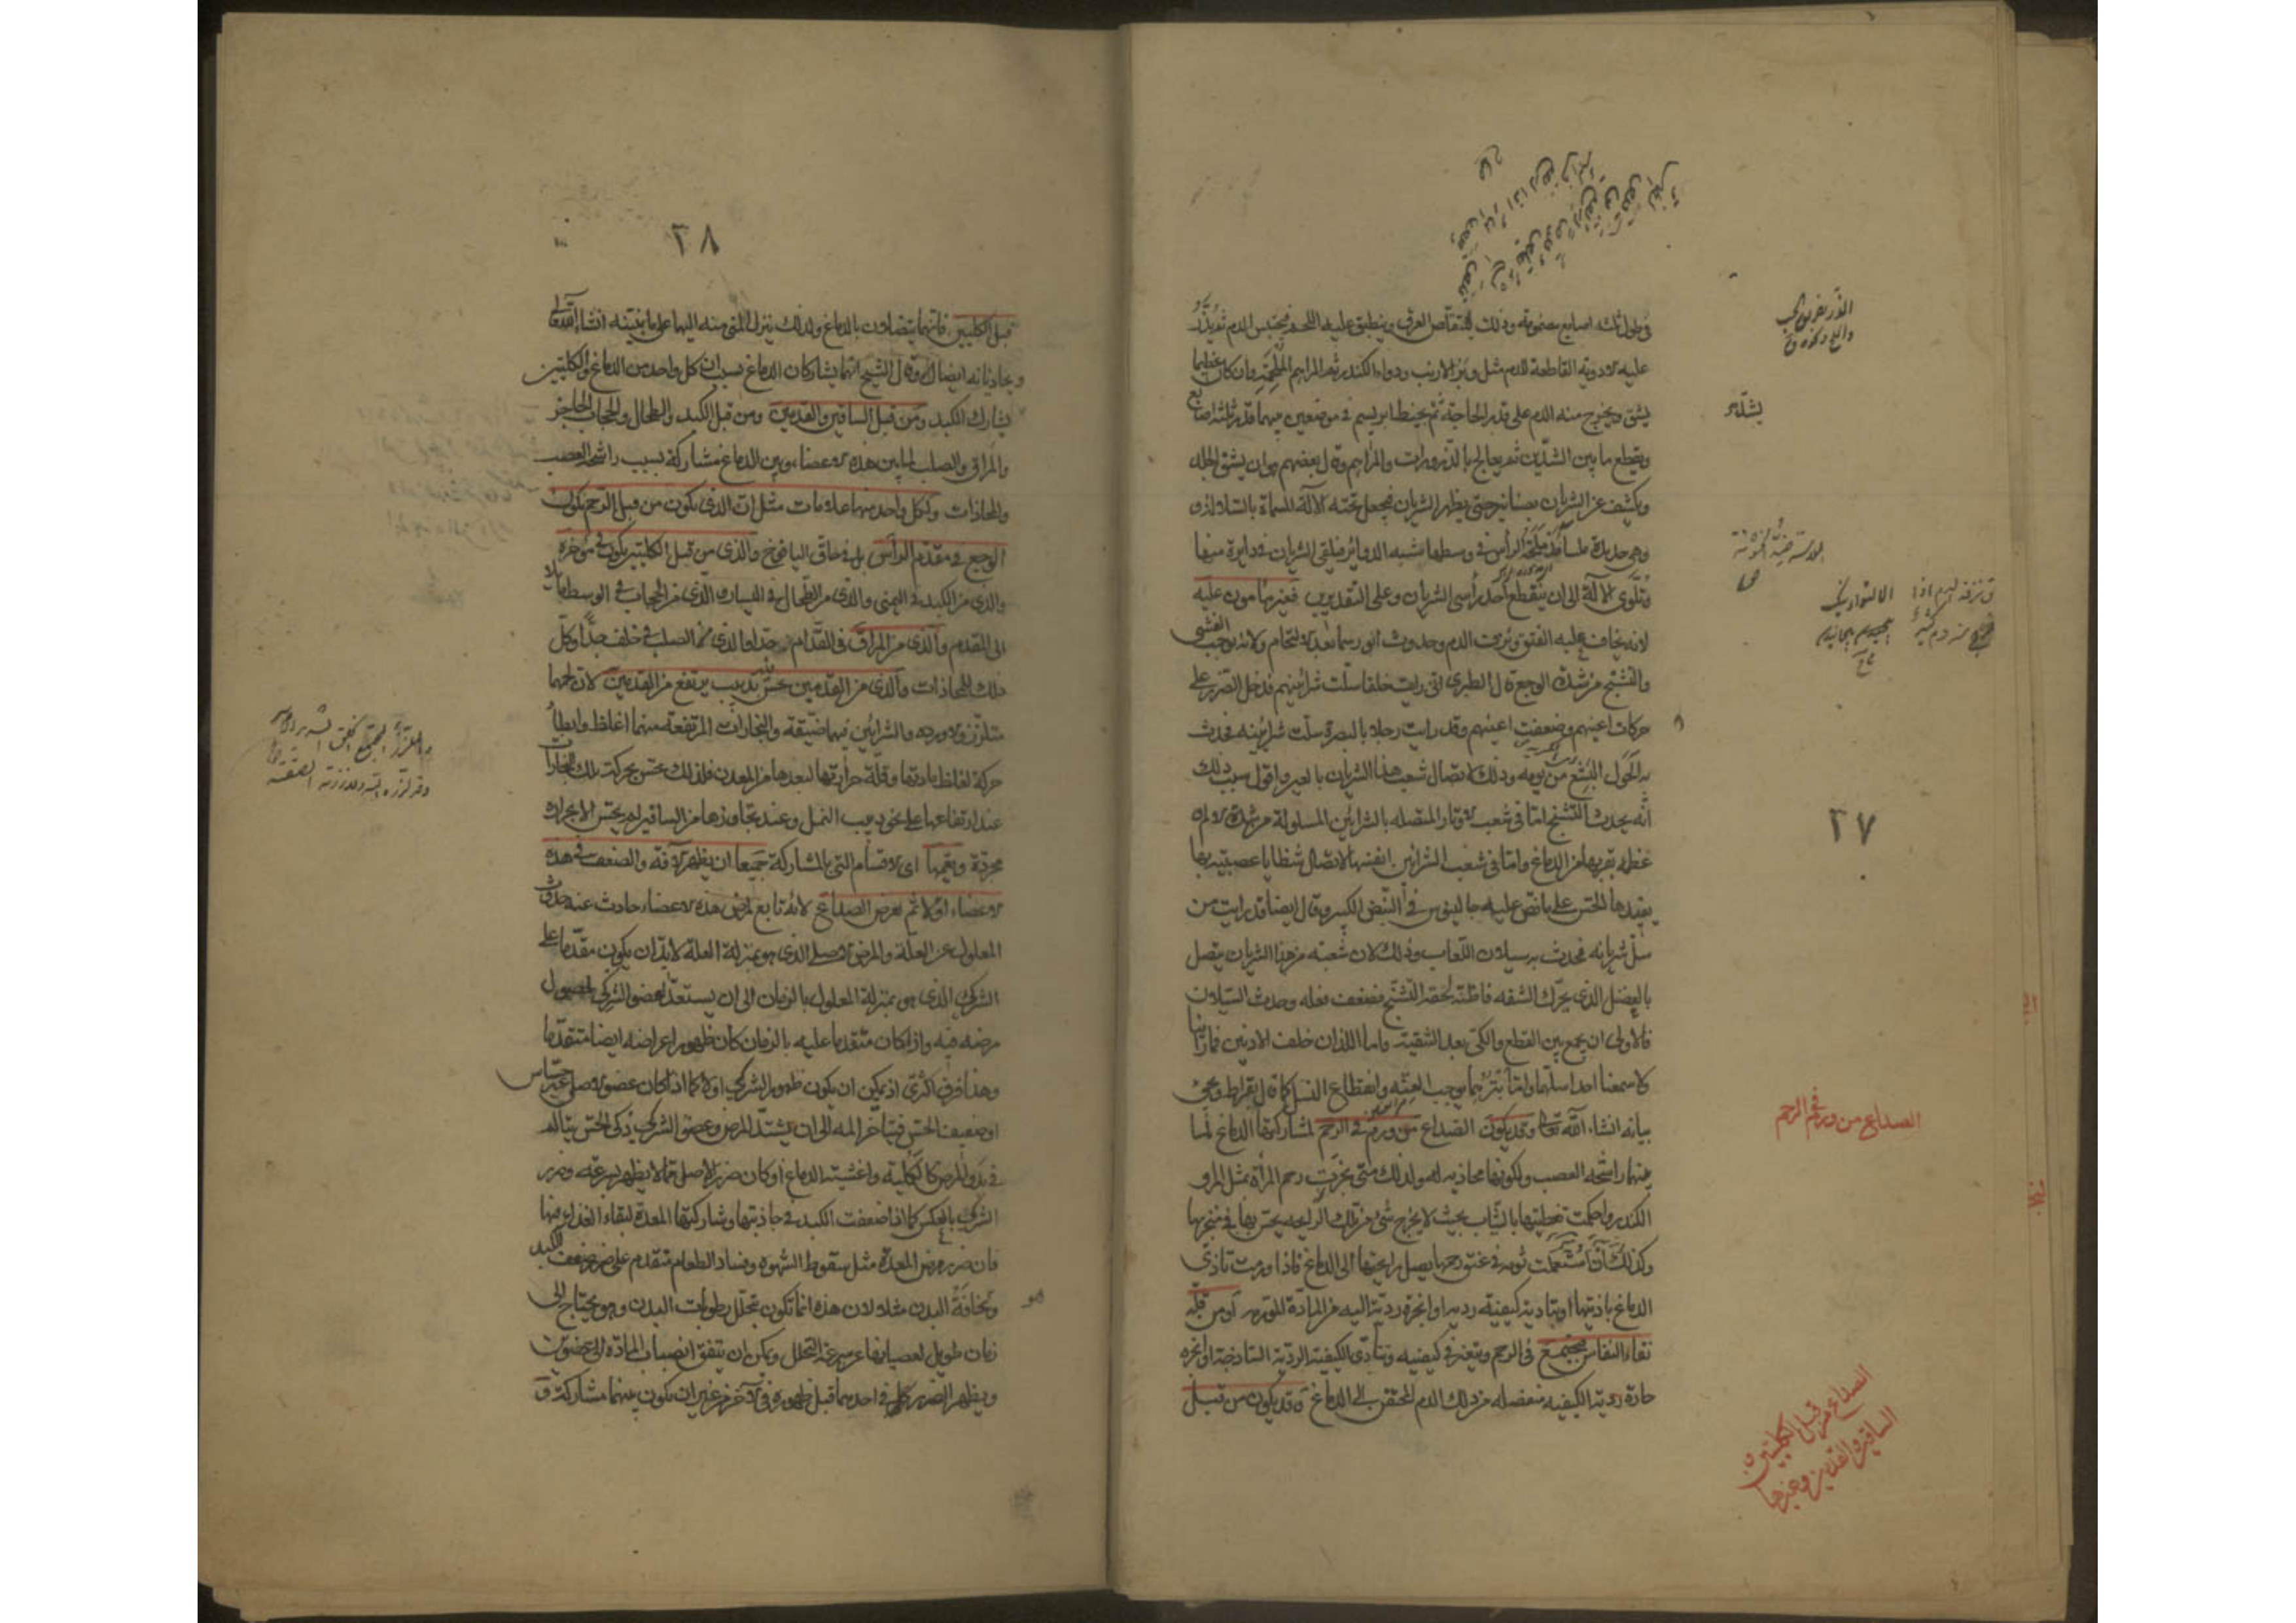 في طول ثلث اصابع مضمومة وذلك ليتقلّص العرق وينطبق عليه اللحم فيحتبس الدم ثم يذرّ
عليه الادوية القاطعة للدم مثل وبر الارنب ودواء الكندر ثم المراهم الملحمة وان كان عظيما
يشق ويخرج منه الدم على قدر الحاجة ثم يخيط بابريسم في موضعين بينهما قدر ثلثة اصابع
ويقطع ما بين الشدّين ثم يعالج بالذرورات والمراهم وقال بعضهم هو ان يشق الجلد
ويكشف عن الشريان بصنانير حتى يظهر الشريان فيجعل تحته الآلة المسماة بالسلا
وهي حديدة ملساء الرأس في وسطها شبه الدوائر فيلقى الشريان في دايرة منها
وتلوى الآلة الى ان ينقطع احد رأسي الشريان وعلى التقديرين فغير مأمون عليه
لانه يخاف عليه الفتق ونزف الدم وحدوث انورسما بعد الالتحام ولانه يوجب الغشي
والتشنج من شدة الوجع قال الطبري اني رايت خلقا سلّت شرائينهم فدخل الضرر على
حركات اعينهم وضعفت اعينهم وقد رايت رجلا بالبصرة سلّت شرايينه فحدث
به الحول البشع من يومه وذلك لاتصال شعب هذا الشريان بالعين واقول سبب ذلك
انه يحدث التشنج امّا في شعب الاوتار المتصلة بالشرائين المسلولة من شدة الالم
عظم بقربها من الدماغ وامّا في شعب الشرائين انفسها لاتصال شظايا عصبية بها
يفيدها الحس على ما نص عليه جالينوس في النبض الكبير وقال ايضا قد رايت من
سلّ شريانه فحدث به سيلان اللعاب وذلك لان شعبة من هذا الشريان يتصل
بالعضل الذي يحرّك الشفة فاظنه لحقه التشنج فضعف فعله وحدث السيلان
فالاولى ان يجمع بين القطع والكي بعد الشقية واما اللذان خلف الاذنين فما راينا
ولا سمعنا احدا سلّهما وامّا بترهما يوجب العنّة وانقطاع النسل كما قال بقراط ويجئ
بيانه انشاء الله تعالى وقد يكون الصداع من ورم في الرحم لمشاركتها الدماغ لما
بينهما راشحة العصب ولكونها محاذية له ولذلك متى بخرت رحم المرأة بمثل المر و
الكندر واحكمت تغطيتها بالثياب بحيث لا يخرج شئ من تلك الرايحة يحس بها في منخريها
وكذلك اذا شمعت ثومة في عنق رحمها يصل رايحتها الى الدماغ فاذا ورمت تاذى
الدماغ باذيتها او بتادية كيفية ردية او ابخرة ردية اليه من المادة المورمة او من قلة
نقاء النفاس فيجتمع في الرحم ويتغير في كيفيته وتتأدى الكيفية الردية الساذجة او ابخرة
حادة ردية الكيفية منفصلة من ذلك الدم المحتقن الى الدماغ وقد يكون من قبل
يشدّه
٢٧
الصداع من ورم في الرحم
الصداع من قبل الكليتين و
الساقين والقدمين وغيرها
٢٨
قبل الكليتين فانهما يتضادان بالدماغ ولذلك ينزل المني منه اليهما على ما نبينه انشا الله تعالى
ويحاذيانه ايضا وقال الشيخ انهما يشاركان الدماغ بسبب ان كل واحد من الدماغ والكليتين
يشارك الكبد ومن قبل الساقين والقدمين ومن قبل الكبد والطحال والحجاب الحاجز
والمراق والصلب لما بين هذه الاعضاء وبين الدماغ مشاركة بسبب راشحة العصب
والمحاذات ولكل واحد منها علامات مثل ان الذي يكون من قبل الرحم يكون
الوجع في مقدم الراس بل في حاق اليافوخ والذي من قبل الكليتين يكون في مؤخره
والذي من الكبد في اليمنى والذي من الطحال في اليسار والذي من الحجاب في الوسط مايلا
الى المقدم والذي من المراق في القدّام جدا والذي من الصلب في خلف جدّا وكلّ
ذلك للمحاذات والذي من القدمين يحس بدبيب يرتفع من القدمين لان لحمهما
متلزّز والاوردة والشرائين فيهما ضيّقة والبخارات المرتفعة منهما اغلظ وابطأ
حركة لغلظ مادتها وقلّة حرارتها لبعدها من المعدن فلذلك يحس بحركة تلك البخارات
عند ارتفاعها على نحو دبيب النمل وعند تجاوزها من الساقين لم يحس الا بحرارة
مجرّدة ويعمّها اي الاقسام التي بالمشاركة جميعا ان يظهر الآفة والضعف في هذه
الاعضاء اولا ثم يعرض الصداع لانه تابع لمرض هذه الاعضاء حادث عنه حدوث
المعلول عن العلة والمرض الاصلي الذي هو بمنزلة العلة لا بدّ ان يكون مقدّما على
الشركي الذي هو بمنزلة المعلول بالزمان الى ان يستعدّ العضو الشركي لحصول
مرضه فيه واذا كان متقدما عليه بالزمان كان ظهور اعراضه ايضا متقدّما
وهذا فرق اكثري اذ يمكن ان يكون ظهور الشركي اولا كما اذا كان عضو الاصل غير حساس
او ضعيف الحس فيتأخر المه الى ان يشتدّ المرض وعضو الشركي ذكي الحس يتألم
في بدو المرض كالكلية واغشية الدماغ او كان ضرر الاصل مما لا يظهر بسرعة وضرر
الشركي بالعكس كما اذا ضعفت الكبد في جاذبتها وشاركتها المعدة لبقاء الغذاء فيها
فان ضرر مرض المعدة مثل سقوط الشهوة وفساد الطعام متقدم على ضرر ضعف الكبد
ونحافة البدن مثلا لان هذه انما تكون بتحلل رطوبات البدن وهو يحتاج الى
زمان طويل لعصيانها عن سرعة التحلل ويمكن ان يتفق انصباب المادة الى عضوين
ويظهر الضرر في احدهما قبل ظهوره في الآخر من غير ان يكون بينهما مشاركة ق